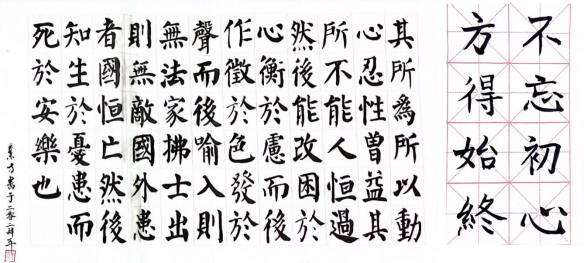 不忘初心
方得始終
其所為所以動
心忍性曾益其
所不能人恒過
然後能改困於
心衡於慮而後
作徵於色發於
聲而後喻入則
無法家拂士出
則無敵國外患
者國恒亡然後
知生於憂患而
死於安樂也